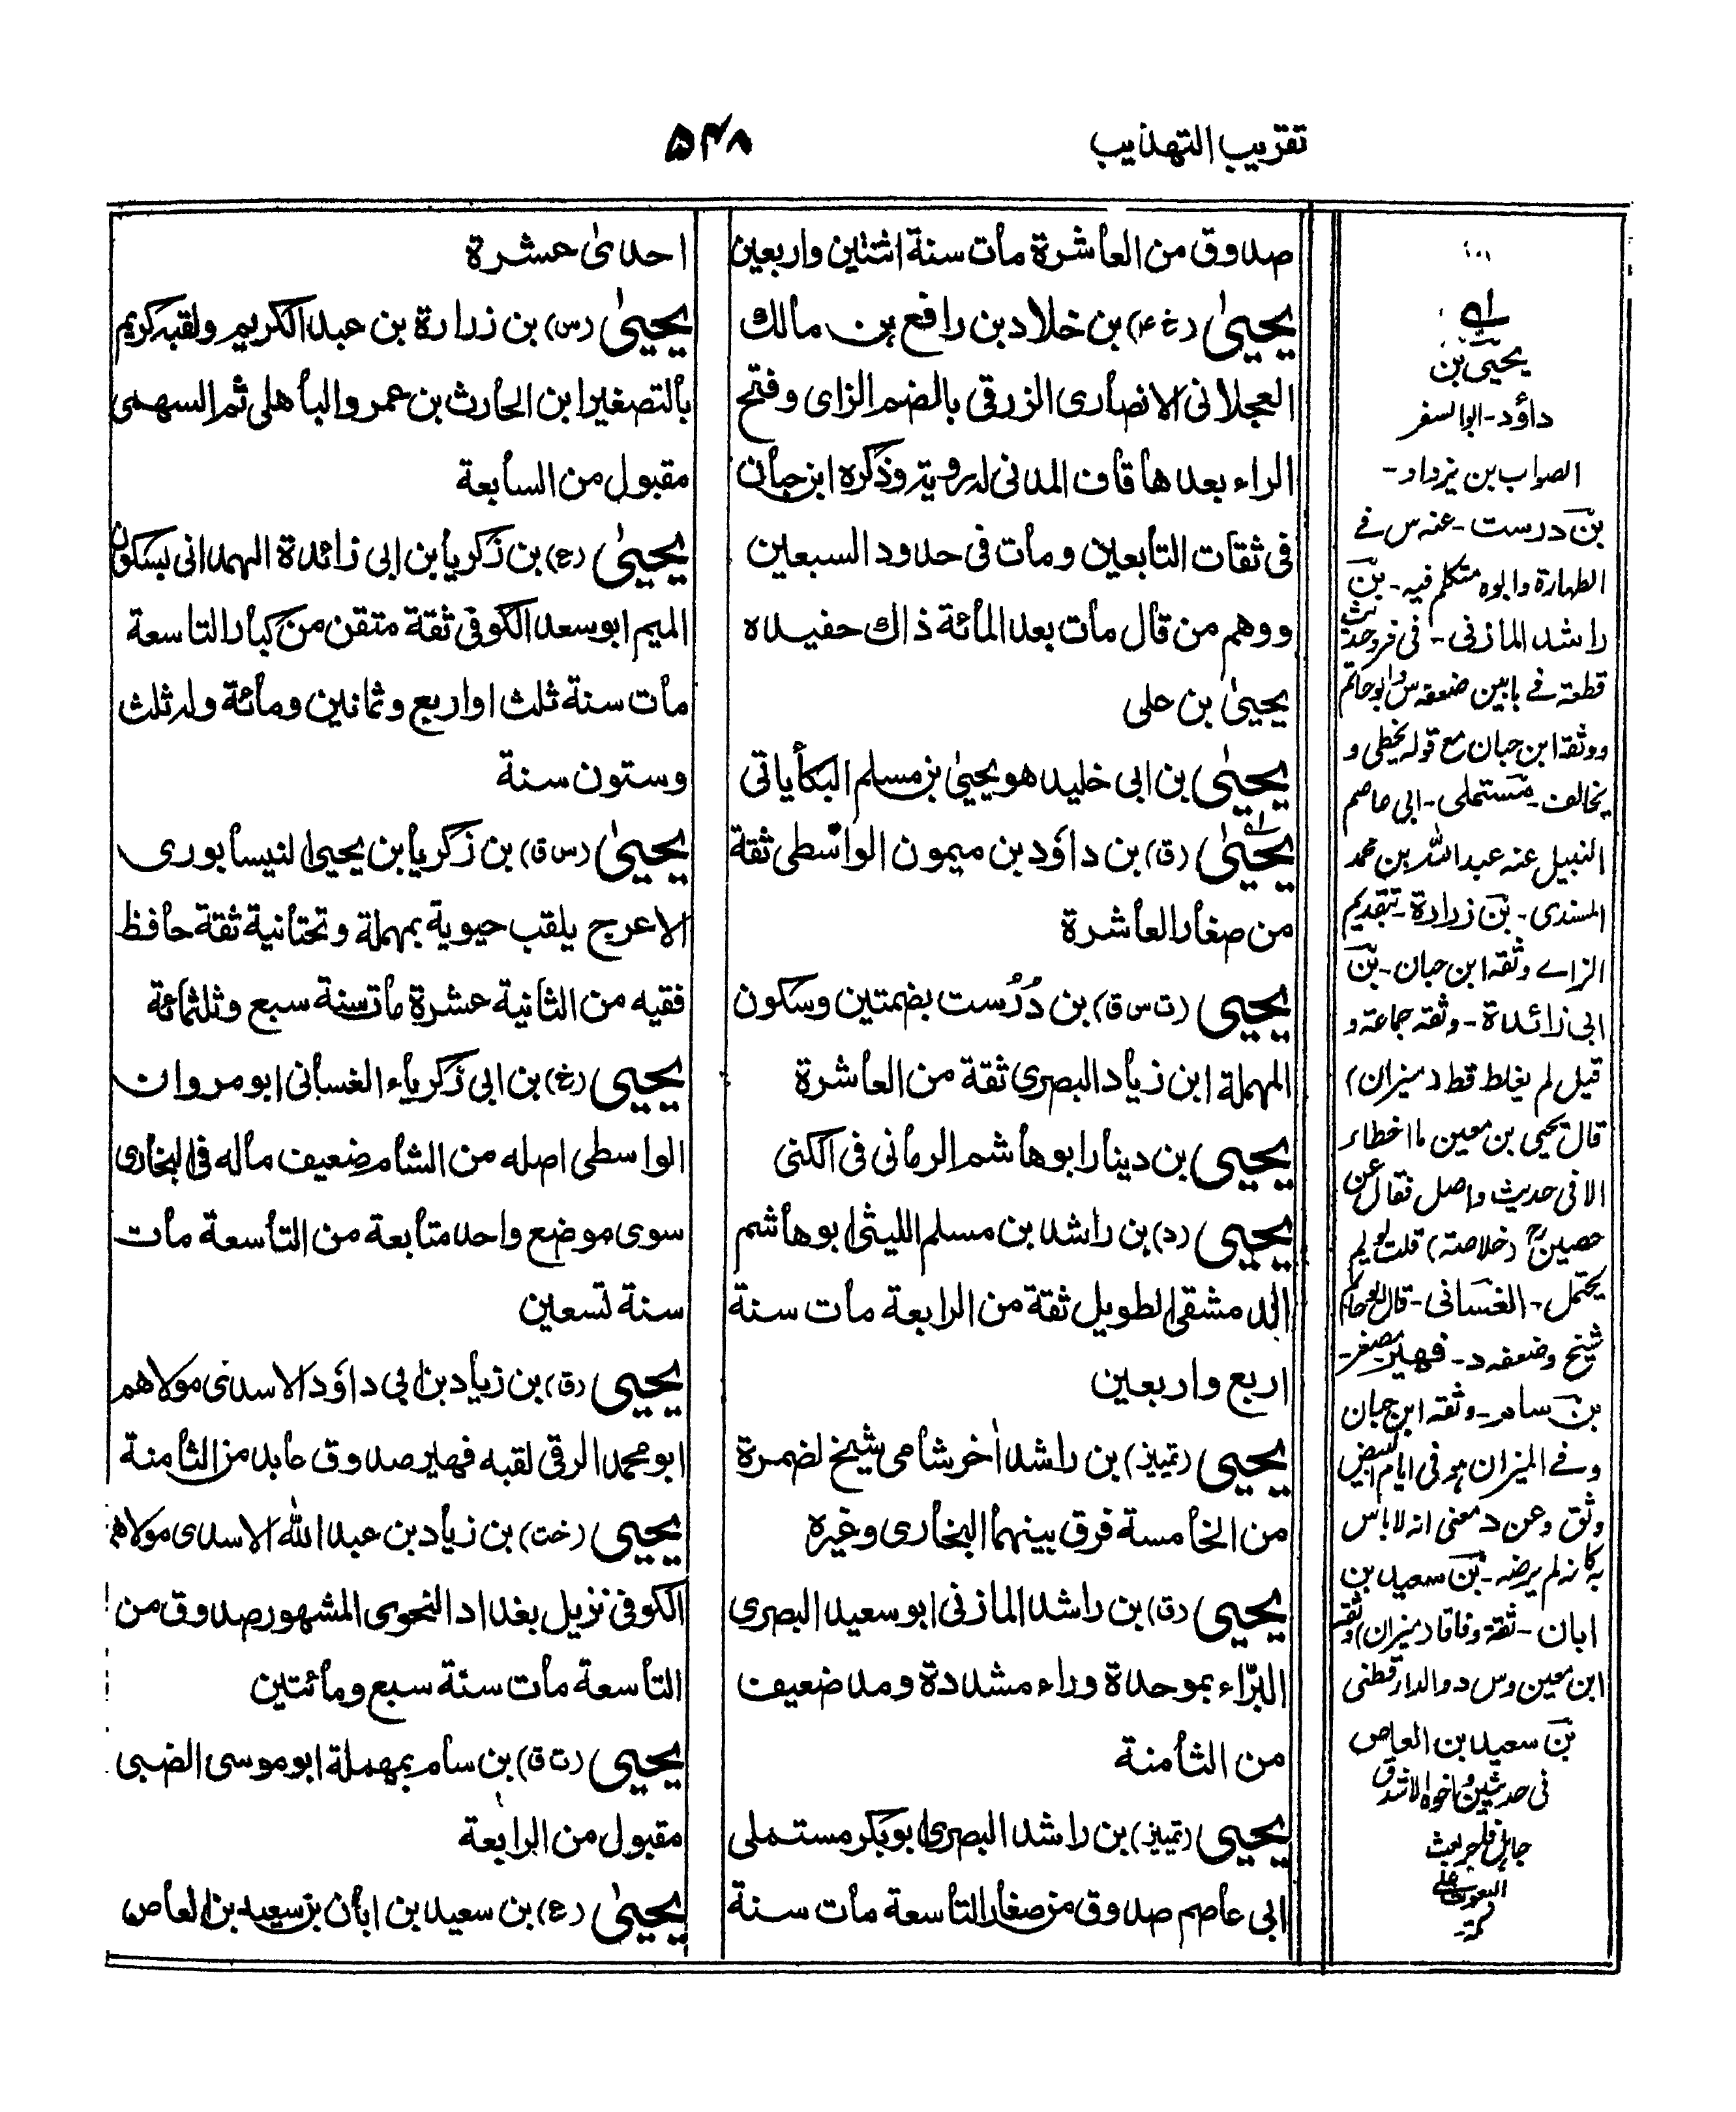 تقريب التهذيب
۵۴۸
صدوق من العاشرة مات سنة اثنتين واربعين
يحيىٰ (رخ ۴) بن خلاد بن رافع بن مالك
العجلاني الانصارى الزرقي بالضم الزاى وفتح
الراء بعدها قاف المدنى له روية وذكره ابن حبان
فى ثقات التابعين ومات فى حدود السبعين
ووهم من قال مات بعد المائة ذاك حفيده
يحيىٰ بن على
يحيىٰ بن ابى خليد هو يحيىٰ بن مسلم البكاء ياتى
يحيىٰ (ق) بن داؤد بن ميمون الواسطى ثقة
من صغار العاشرة
يحيى (ت س ق) بن دُرُست بضمتين وسكون
المهملة ابن زياد البصرى ثقة من العاشرة
يحيى بن دينار ابو هاشم الرمانى فى الكنى
يحيى (د) بن راشد بن مسلم الليثى ابو هاشم
الدمشقى الطويل ثقة من الرابعة مات سنة
اربع واربعين
يحيى (تمييز) بن راشد اٰخر شامى شيخ لضمرة
من الخامسة فرق بينهما البخارى وغيره
يحيى (ق) بن راشد المازنى ابو سعيد البصرى
البرّاء بموحدة وراء مشددة ومد ضعيف
من الثامنة
يحيى (تمييز) بن راشد البصرى ابو بكر مستملى
ابى عاصم صدوق من صغار التاسعة مات سنة
احدىٰ عشرة
يحيىٰ (س) بن زرارة بن عبد الكريم ولقبه كريم
بالتصغير ابن الحارث بن عمرو الباهلى ثم السهمى
مقبول من السابعة
يحيىٰ (ع) بن زكريا بن ابى زائدة الهمدانى بسكون
الميم ابو سعد الكوفى ثقة متقن من كبار التاسعة
مات سنة ثلث او اربع وثمانين ومائة وله ثلث
وستون سنة
يحيىٰ (س ق) بن زكريا بن يحيى النيسابورى
الاعرج يلقب حيوية بمهملة وتحتانية ثقة حافظ
فقيه من الثانية عشرة مات سنة سبع وثلثمائة
يحيى (خ) بن ابى زكرياء الغسانى ابو مروان
الواسطى اصله من الشام ضعيف ماله فى البخارى
سوى موضع واحد متابعة من التاسعة مات
سنة تسعين
يحيى (ق) بن زياد بن ابى داؤد الاسدى مولاهم
ابو محمد الرقى لقبه فهير صدوق عابد من الثامنة
يحيى (خت) بن زياد بن عبد الله الاسدى مولاهم
الكوفى نزيل بغداد النحوى المشهور صدوق من
التاسعة مات سنة سبع ومائتين
يحيى (ت ق) بن سام بمهملة ابو موسى الضبى
مقبول من الرابعة
يحيىٰ (ع) بن سعيد بن ابان بن سعيد بن العاص
يحيى بن
داؤد - ابو السفر
الصواب بن يزداد -
بن درست - عنه س فے
الطهارة وابوه متكلم فيه - بن
راشد المازنى - فى فرد حديث
قطعة فے بابين ضعفه س وابو حاتم
ووثقه ابن حبان مع قوله يخطى و
يخالف - مستملى - ابى عاصم
النبيل عنه عبد الله بن محمد
المسندى - بن زرارة - بتقديم
الزاے وثقه ابن حبان - بن
ابى زائدة - وثقه جماعة و
قيل لم يغلط قط (ميزان)
قال يحيى بن معين ما اخطاء
الا فى حديث واصل فقال عن
حصين (خلاصته) قلت لو لم
يحتمل - الغسانى - قال ابو حاتم
شيخ وضعفه د - فهير مصغر -
بن سام - وثقه ابن حبان
وفے الميزان هو فى ايام البيض
وثق وعن د معنى انه لا باس
به كانه لم يرضه - بن سعيد بن
ابان - ثقة وفاقا (ميزان) وثقه
ابن معين وس د والدارقطنى
بن سعيد بن العاص
فى حديثين واخوه الاشدق